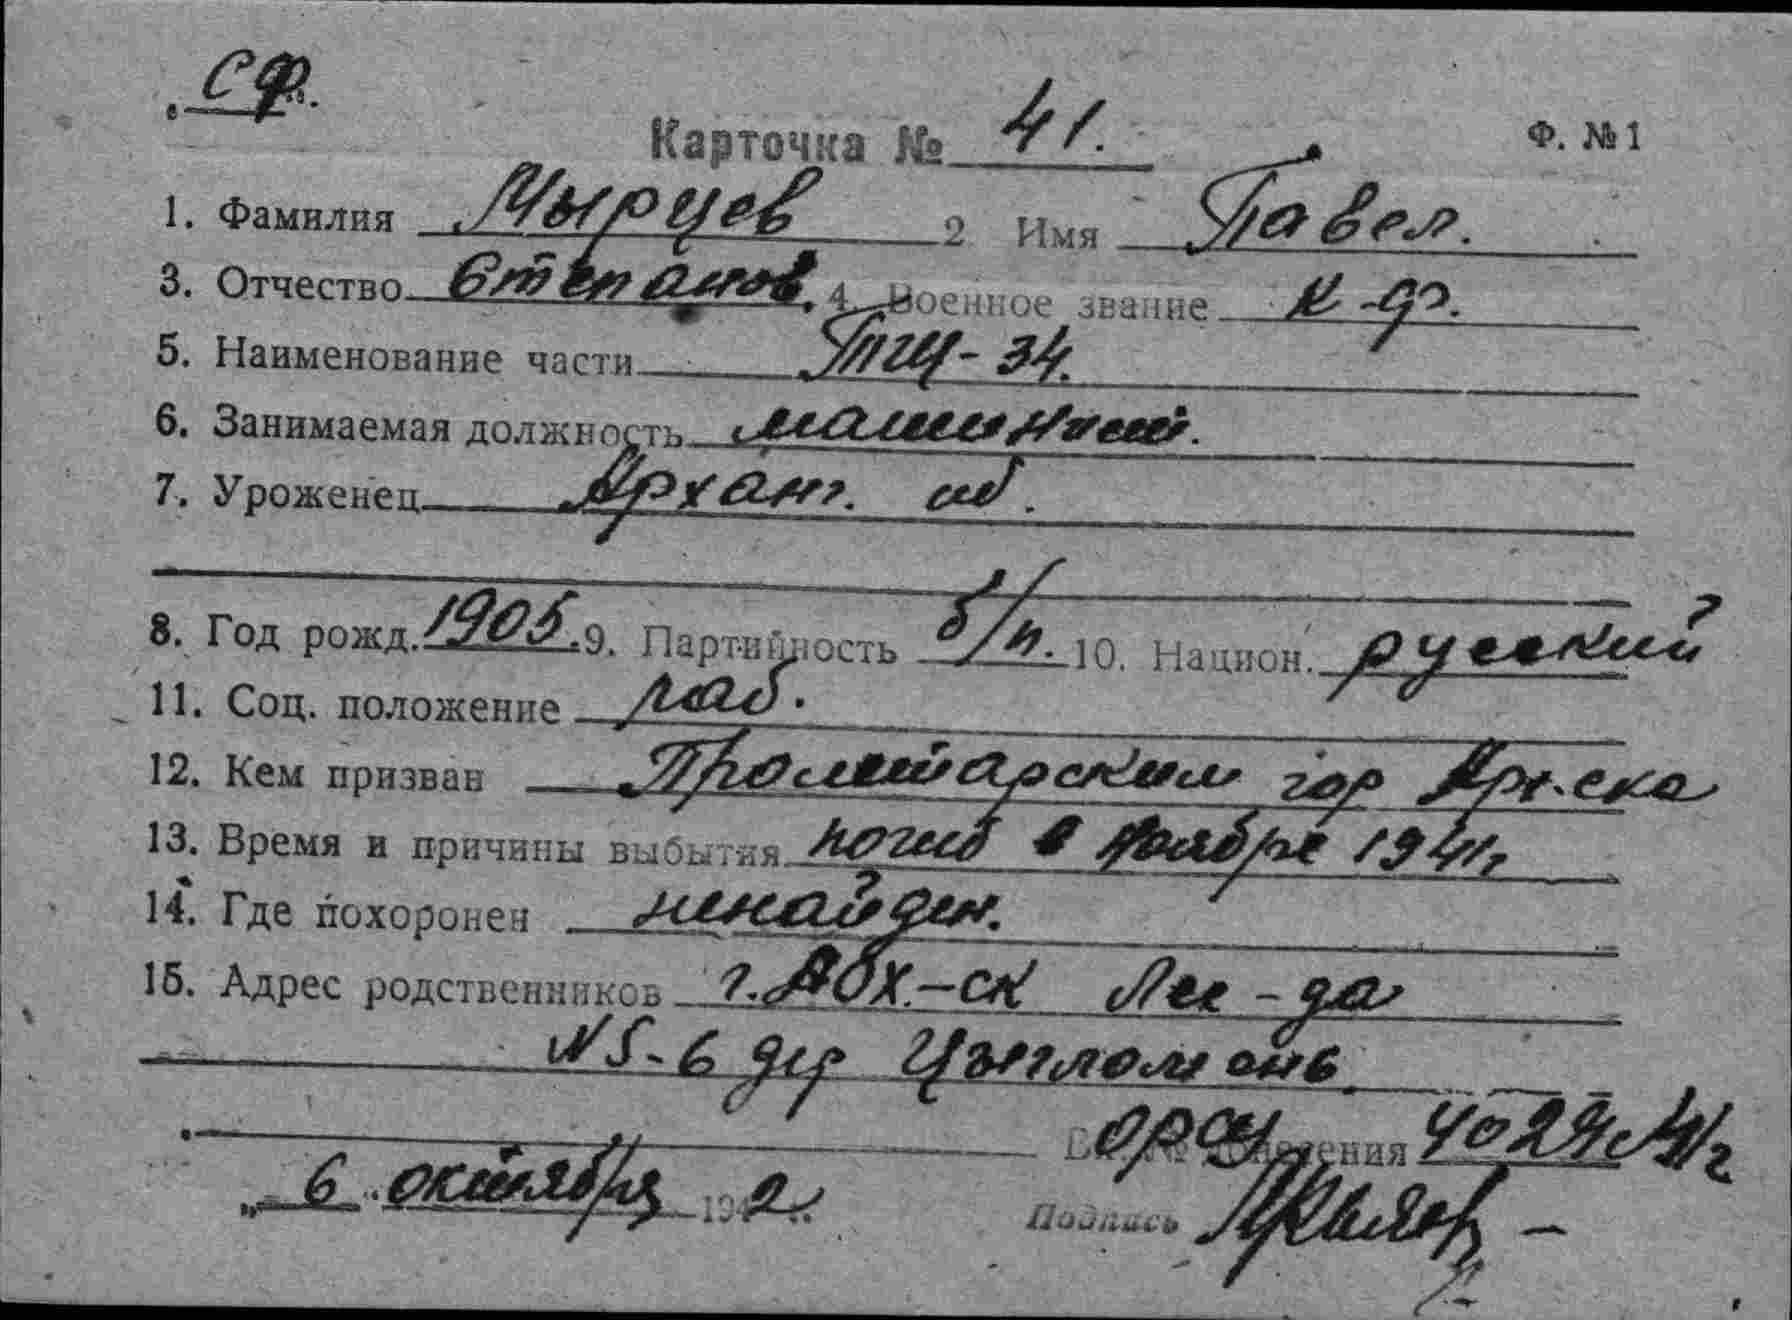 СФ.
Карточка № 41. Ф. № 1
1. Фамилия Мырцев 2 Имя Павел.
3. Отчество Степанов. 4. Военное звание к-ф.
5. Наименование части ТЩ-34.
6. Занимаемая должность машинист.
7. Уроженец Арханг. об.
8. Год рожд. 1905. 9. Партийность б/п. 10. Национ. русский
11. Соц. положение раб.
12. Кем призван Пролетарским гор Арх.ска
13. Время и причины выбытия погиб в ноябре 1941г
14. Где похоронен ненайден.
15. Адрес родственников г. АрХ.-ск Лес-да
N 5-6 дер Цыгломень
ОРСУ 4029с 41г
„ 6 " октября 1942
Подпись